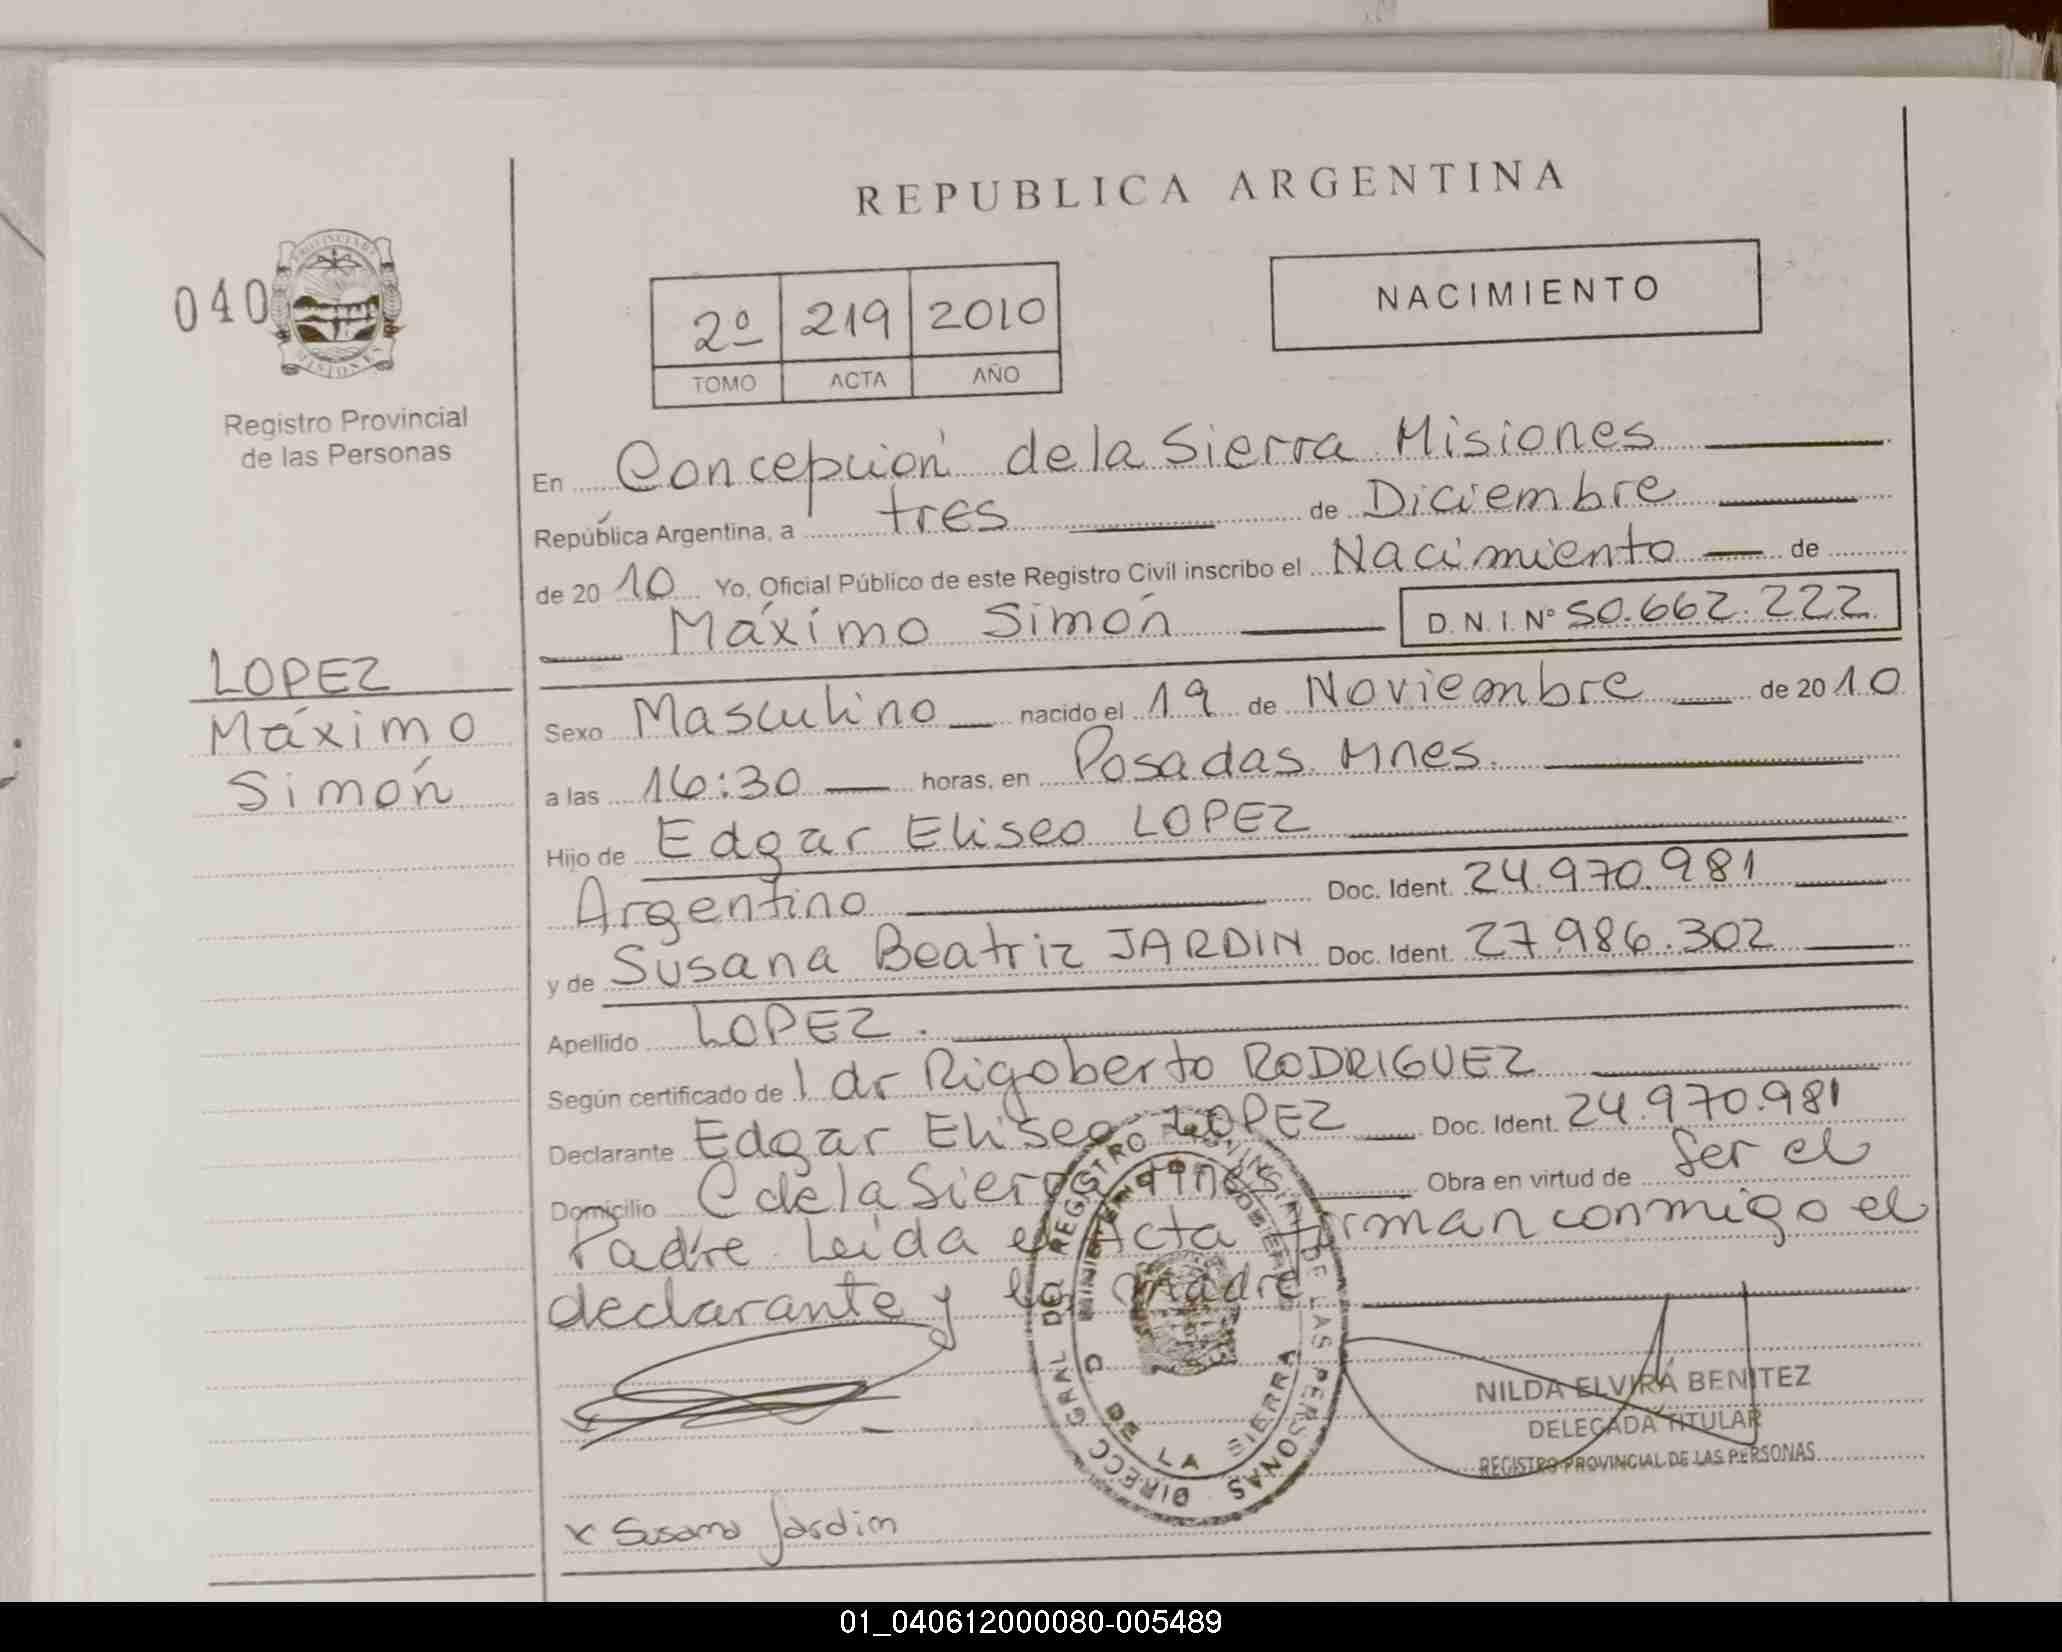 REPUBLICA ARGENTINA
040
PROVINCIA DE MISIONES
Registro Provincial
de las Personas
2º 219 2010
TOMO ACTA AÑO
NACIMIENTO
En Concepción de la Sierra Misiones
República Argentina, a tres de Diciembre
de 2010 Yo, Oficial Público de este Registro Civil inscribo el Nacimiento de
Máximo Simón D.N.I. Nº 50.662.222
LOPEZ
Máximo
Simón
Sexo Masculino nacido el 19 de Noviembre de 2010
a las 16:30 horas, en Posadas Mnes.
Hijo de Edgar Eliseo LOPEZ
Argentino Doc. Ident. 24.970.981
y de Susana Beatriz JARDIN Doc. Ident. 27.986.302
Apellido LOPEZ.
Según certificado de l dr Rigoberto RODRIGUEZ
Declarante Edgar Eliseo LOPEZ Doc. Ident. 24.970.981
Domicilio C de la Sierra Mnes Obra en virtud de Ser el
Padre Leída el Acta firman conmigo el
declarante y la madre
DIRECC GRAL DEL REGISTRO DE LAS PERSONAS
C DE LA SIERRA
NILDA ELVIRA BENITEZ
DELEGADA TITULAR
REGISTRO PROVINCIAL DE LAS PERSONAS
x Susana Jardin
01_040612000080-005489